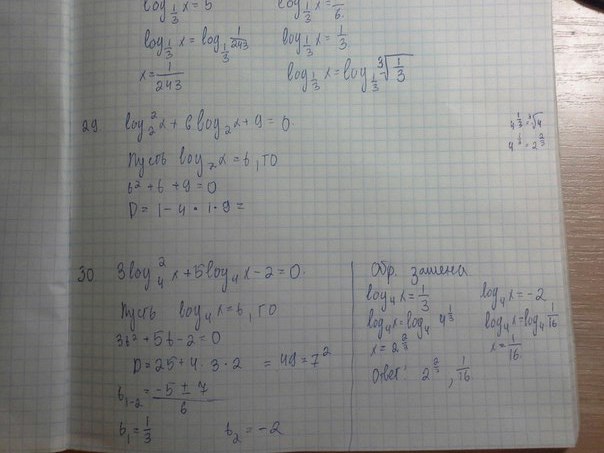 log_{1/3} x = 5
log_{1/3} x = log_{1/3} 1/243
log_{1/3} x = 1/3
x = 1/243
log_{1/3} x = log_{1/3} ∛(1/3)
29 log₂² x + 6 log₂ x + 9 = 0.
Пусть log₂ x = t, то
t² + 6 + 9 = 0
D = 1 - 4 · 1 · 9 =
4^{1/3} = ∛4
4^{1/3} = 2^{2/3}
30 3 log₄² x + 5 log₄ x - 2 = 0.
Пусть log₄ x = t, то
3t² + 5t - 2 = 0
D = 25 + 4 · 3 · 2 = 49 = 7²
t₁₋₂ = (-5 ± 7)/6
t₁ = 1/3 t₂ = -2
Обр. замена
log₄ x = 1/3 log₄ x = -2
log₄ x = log₄ 4^{1/3} log₄ x = log₄ 1/16
x = 2^{2/3} x = 1/16.
Ответ: 2^{2/3}, 1/16.